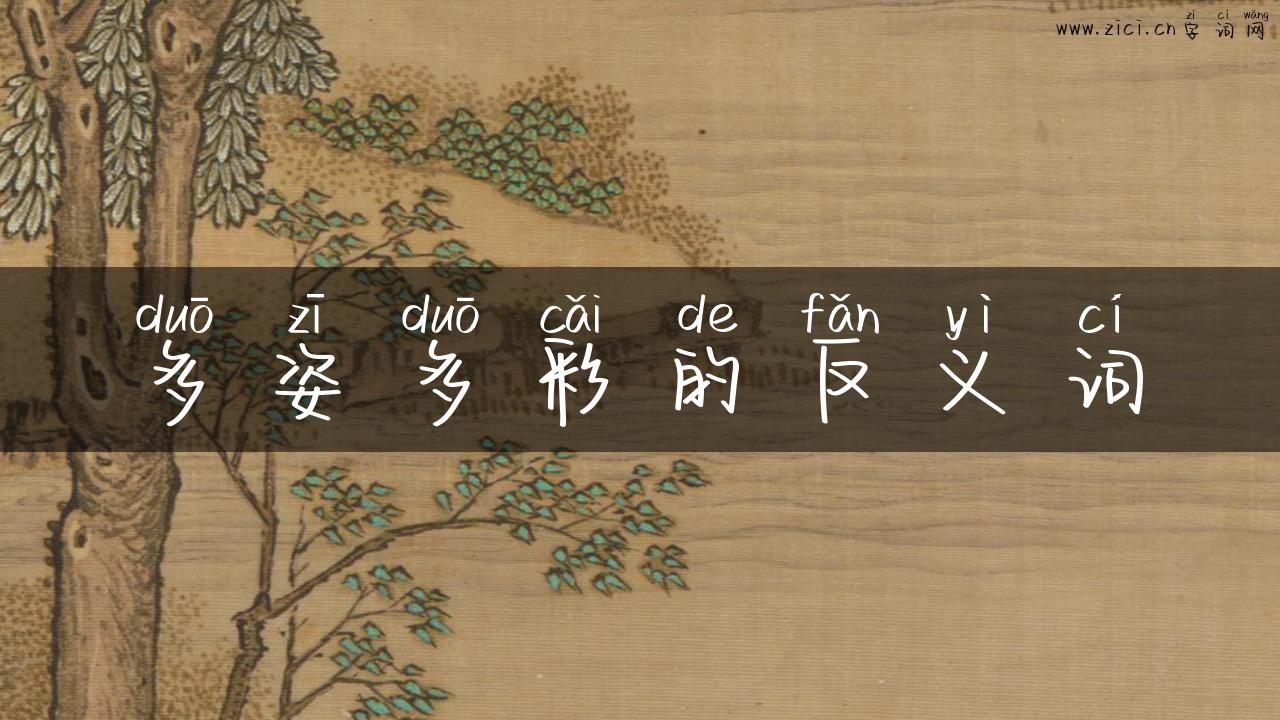 zì cí wǎng
www.zici.cn 字词网
duō zī duō cǎi de fǎn yì cí
多姿多彩的反义词